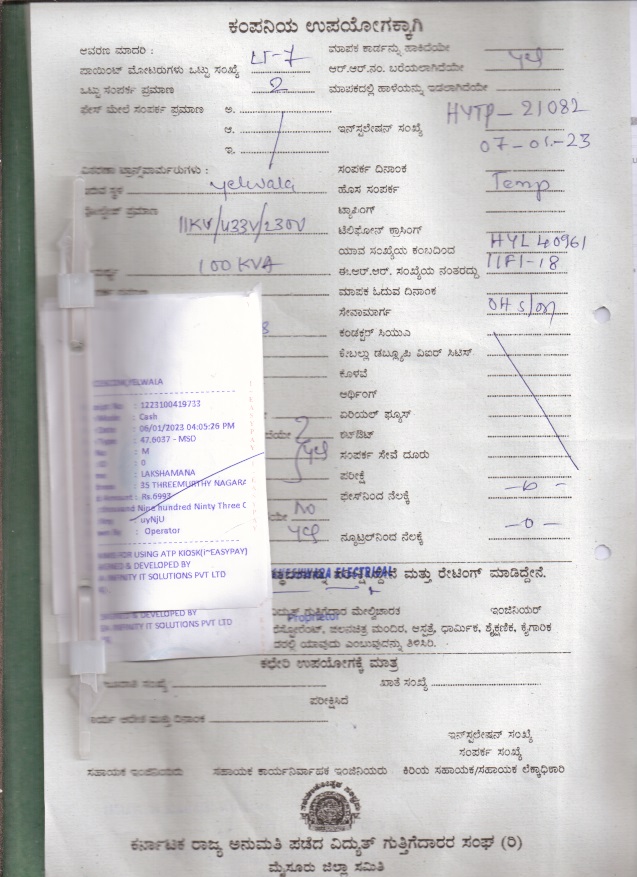 ಕಂಪನಿಯ ಉಪಯೋಗಕ್ಕಾಗಿ
ಆವರಣ ಮಾದರಿ : LT-7 ಮಾಪಕ ಕಾರ್ಡನ್ನು ಹಾಕಿದೆಯೇ
ಪಾಯಿಂಟ್ ಮೋಟರುಗಳು ಒಟ್ಟು ಸಂಖ್ಯೆ ಆರ್.ಆರ್.ನಂ. ಬರೆಯಲಾಗಿದೆಯೇ yes
ಒಟ್ಟು ಸಂಪರ್ಕ ಪ್ರಮಾಣ 2 ಮಾಪಕದಲ್ಲಿ ಹಾಳೆಯನ್ನು ಇಡಲಾಗಿದೆಯೇ
ಫೇಸ್ ಮೇಲೆ ಸಂಪರ್ಕ ಪ್ರಮಾಣ ಅ. HYTP-21082
ಆ. ಇನ್‌ಸ್ಟಲೇಷನ್ ಸಂಖ್ಯೆ
ಇ. 07-01-23
ವಿತರಣಾ ಟ್ರಾನ್ಸ್‌ಫಾರ್ಮರುಗಳು : ಸಂಪರ್ಕ ದಿನಾಂಕ
ಸ್ಥಳ Yelwala ಹೊಸ ಸಂಪರ್ಕ Temp
ಪ್ರಮಾಣ 11KV/433V/230V ಟ್ಯಾಪಿಂಗ್
ಟೆಲಿಫೋನ್ ಕ್ರಾಸಿಂಗ್
ಯಾವ ಸಂಖ್ಯೆಯ ಕಂಬದಿಂದ HYL 40961
100 KVA ಈ.ಆರ್.ಆರ್. ಸಂಖ್ಯೆಯ ನಂತರದ್ದು
ಮಾಪಕ ಓದುವ ದಿನಾಂಕ
ಸೇವಾಮಾರ್ಗ
ಕಂಡಕ್ಟರ್ ಸಿಯುವಿ
ಕೇಬಲ್ಲು ಡಬ್ಲ್ಯೂಪಿ ವಿಐರ್ ಸಿಟಿಸ್
ಕೊಳವೆ
ಅರ್ಥಿಂಗ್
ಏರಿಯಲ್ ಫ್ಯೂಸ್
ಕಟ್‌ಔಟ್
yes ಸಂಪರ್ಕ ಸೇವೆ ದೂರು
ಪರೀಕ್ಷೆ
ಫೇಸ್‌ನಿಂದ ನೆಲಕ್ಕೆ -0-
No
yes ನ್ಯೂಟ್ರಲ್‌ನಿಂದ ನೆಲಕ್ಕೆ -0-
YELWALA
: 1223100419733
: Cash
: 06/01/2023 04:05:26 PM
: 47.6037 - MSD
: M
: 0
: LAKSHAMANA
: 35 THREEMURTHY NAGARA
: Rs.6993
Nine hundred Ninty Three
: uyNjU
: Operator
FOR USING ATP KIOSK(i~EASYPAY)
& DEVELOPED BY
INFINITY IT SOLUTIONS PVT LTD
& DEVELOPED BY
INFINITY IT SOLUTIONS PVT LTD
ELECTRICAL
ಮತ್ತು ರೇಟಿಂಗ್ ಮಾಡಿದ್ದೇನೆ.
ವಿದ್ಯುತ್ ಗುತ್ತಿಗೆದಾರ ಮೇಲ್ವಿಚಾರಕ ಇಂಜಿನಿಯರ್
Proprietor
ಚಲನಚಿತ್ರ ಮಂದಿರ, ಆಸ್ಪತ್ರೆ, ಧಾರ್ಮಿಕ, ಶೈಕ್ಷಣಿಕ, ಕೈಗಾರಿಕ
ಯಾವುದು ಎಂಬುವುದನ್ನು ತಿಳಿಸಿರಿ.
ಕಛೇರಿ ಉಪಯೋಗಕ್ಕೆ ಮಾತ್ರ
ಸಂಖ್ಯೆ ಖಾತೆ ಸಂಖ್ಯೆ
ಪರೀಕ್ಷಿಸಿದೆ
ಆದೇಶ ಮತ್ತು ದಿನಾಂಕ
ಇನ್‌ಸ್ಟಲೇಷನ್ ಸಂಖ್ಯೆ
ಸಂಪರ್ಕ ಸಂಖ್ಯೆ
ಸಹಾಯಕ ಇಂಜಿನಿಯರು ಸಹಾಯಕ ಕಾರ್ಯನಿರ್ವಾಹಕ ಇಂಜಿನಿಯರು ಕಿರಿಯ ಸಹಾಯಕ/ಸಹಾಯಕ ಲೆಕ್ಕಾಧಿಕಾರಿ
ಕರ್ನಾಟಕ ರಾಜ್ಯ ಅನುಮತಿ ಪಡೆದ ವಿದ್ಯುತ್ ಗುತ್ತಿಗೆದಾರರ ಸಂಘ (ರಿ)
ಮೈಸೂರು ಜಿಲ್ಲಾ ಸಮಿತಿ